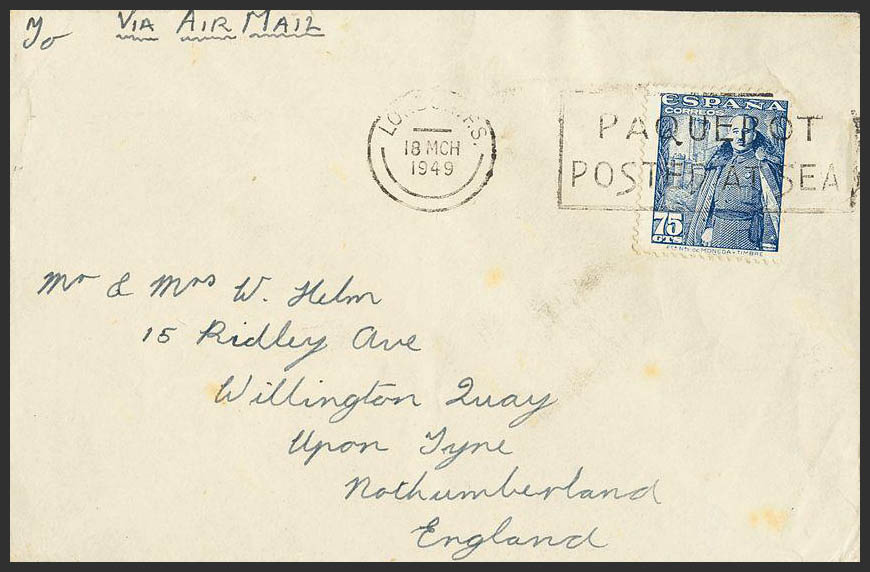 VIA AIR MAIL
LONDON F.S.
18 MCH
1949
PAQUEBOT
POSTED AT SEA
ESPAÑA
CORREOS
75
CTS
Mr & Mrs W. Helm
15 Ridley Ave
Willington Quay
Upon Tyne
Nothumberland
England